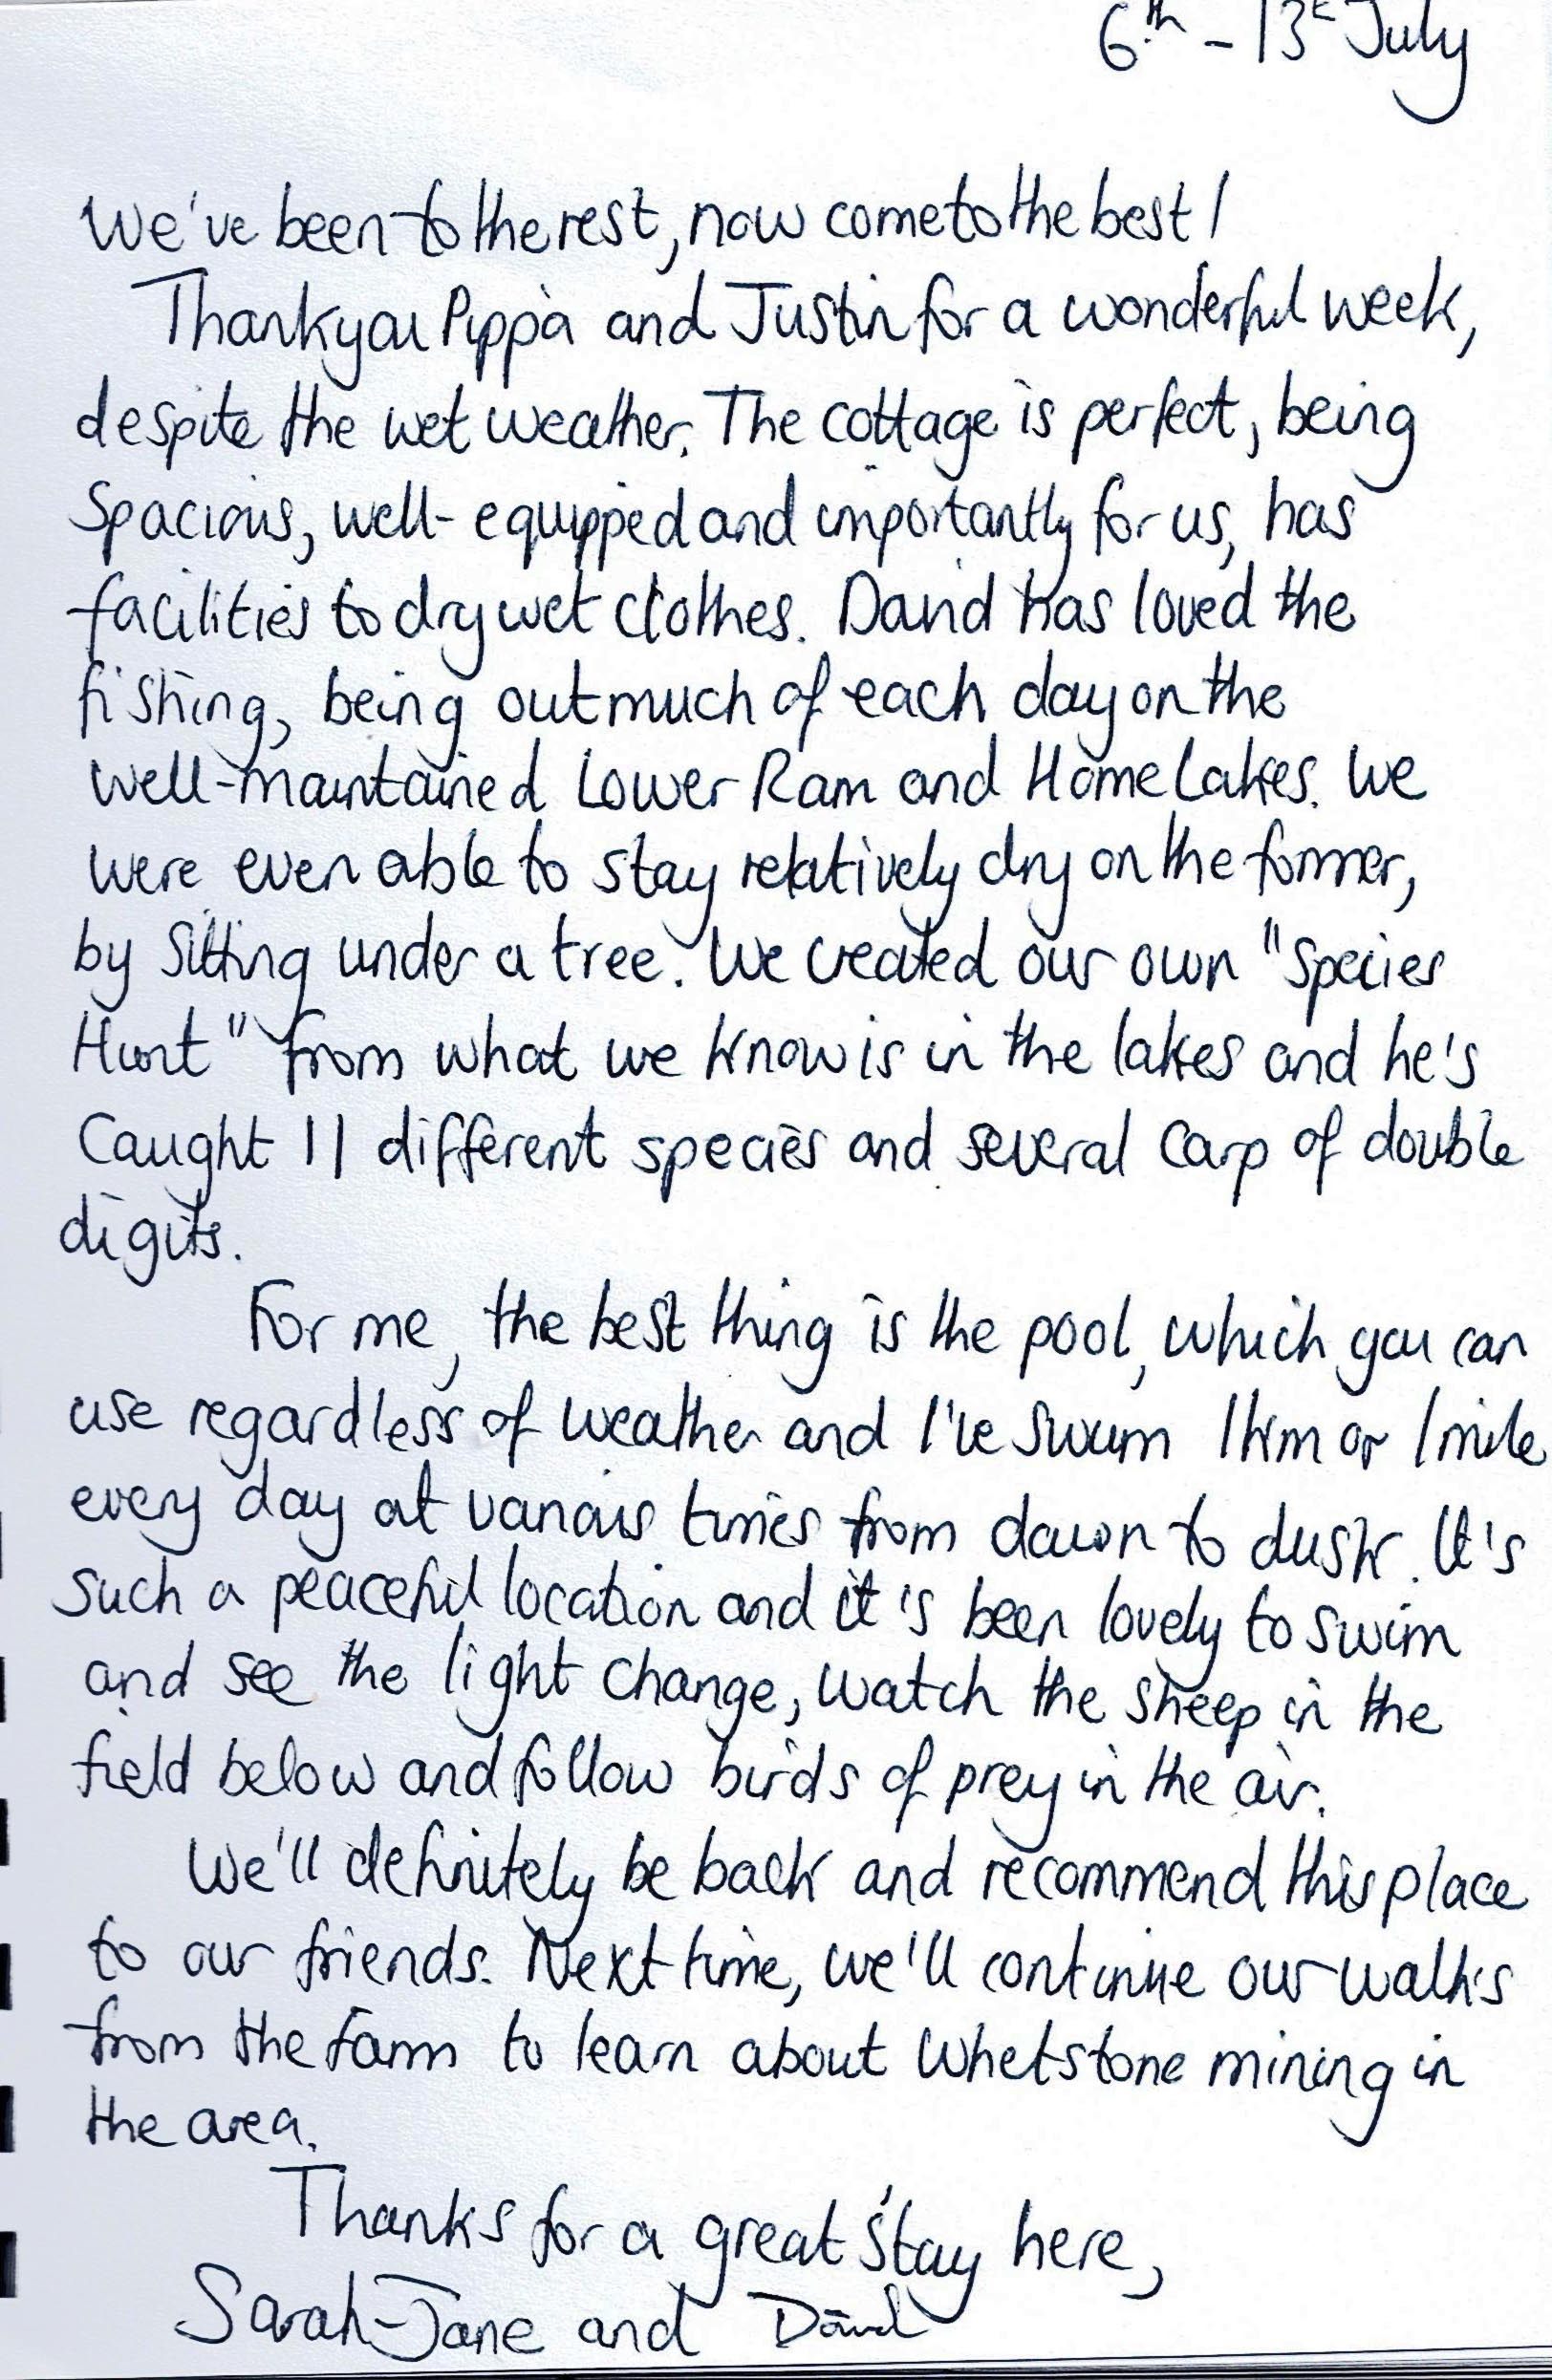 6th - 13th July
We've been to the rest, now come to the best!
Thankyou Pippa and Justin for a wonderful week,
despite the wet weather. The cottage is perfect, being
Spacious, well-equipped and importantly for us, has
facilities to dry wet clothes. David has loved the
fishing, being out much of each day on the
well-maintained Lower Ram and Home Lakes. We
were even able to stay relatively dry on the former,
by sitting under a tree. We created our own "Species
Hunt" from what we know is in the lakes and he's
Caught 11 different species and several carp of double
digits.
For me, the best thing is the pool, which you can
use regardless of weather and I've swum 1km or 1mile
every day at various times from dawn to dusk. It's
such a peaceful location and it's been lovely to swim
and see the light change, watch the sheep in the
field below and follow birds of prey in the air.
We'll definitely be back and recommend this place
to our friends. Next time, we'll continue our walks
from the farm to learn about Whetstone mining in
the area.
Thanks for a great stay here,
Sarah-Jane and David